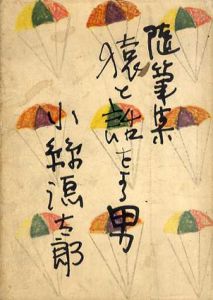 随筆集
猿と話をする男
小絲源太郎